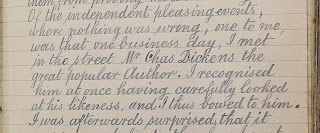 them from proving
Of the independent pleasing events,
where nothing was wrong, one to me,
was that one business day, I met
in the street Mr Chas Dickens the
great popular Author. I recognised
him at once having carefully looked
at his likeness, and I thus bowed to him.
I was afterwards surprised, that it